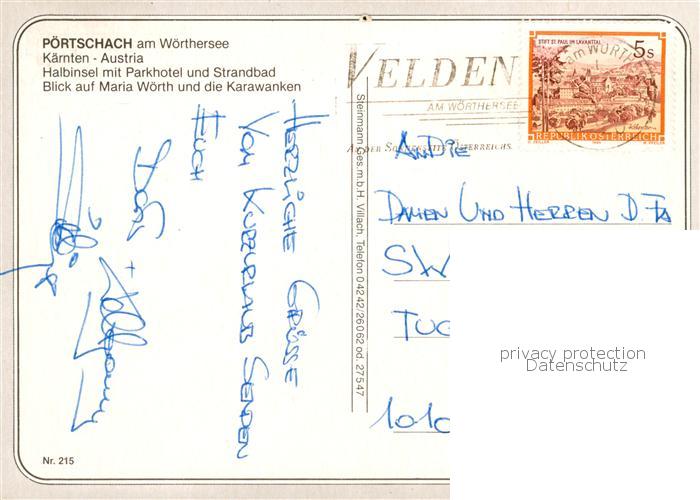 PÖRTSCHACH am Wörthersee
Kärnten - Austria
Halbinsel mit Parkhotel und Strandbad
Blick auf Maria Wörth und die Karawanken
HERZLICHE GRÜSSE
VOM KURZURLAUB SENDEN
EUCH
Nr. 215
Steinmann Ges.m.b.H. Villach, Telefon 04242/26062 od. 27547
VELDEN
AM WÖRTHERSEE
AN DER SONNENSEITE ÖSTERREICHS.
STIFT ST. PAUL IM LAVANTTAL
5 S
REPUBLIK ÖSTERREICH
am WÖRTH
AN DIE
DAMEN UND HERREN D. FA
SW
TUC
1010
privacy protection
Datenschutz